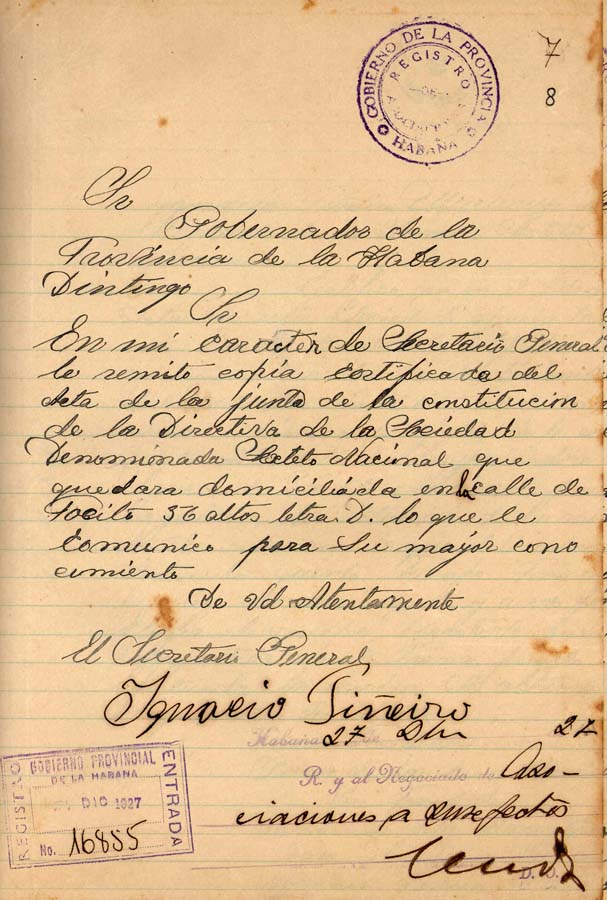 GOBIERNO DE LA PROVINCIA
REGISTRO
DE
ASOCIACIONES
HABANA
7
8
Sr
Gobernador de la
Provincia de la Habana
Distingo
Sr
En mi caracter de Secretario General
le remito copia certificada del
Acta de la junta de la constitucion
de la Directiva de la Sociedad
Denominada Sexteto Nacional que
quedara domiciliada en la calle de
Pocito 56 altos letra D. lo que le
comunico para su mayor cono
cimiento
De Vd Atentamente
El Secretario General
Ignacio Piñeiro
Habana 27 27
R. y al Negociado de Aso-
ciaciones a sus efectos
REGISTRO
GOBIERNO PROVINCIAL
DE LA HABANA
DIC 1927
No. 16855
ENTRADA